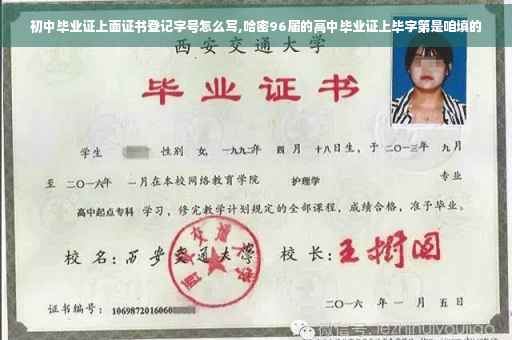 初中毕业证上面证书登记字号怎么写,哈密96届的高中毕业证上毕字第是咱填的
西安交通大学
毕业证书
学生 性别 女, 一九九二年 四月 十八日生, 于 二〇一三年 九月
至 二〇一六年 一月在本校网络教育学院 护理学 专业
高中起点专科 学习, 修完教学计划规定的全部课程, 成绩合格, 准予毕业。
校名: 西安交通大学 校长: 王树国
西安交通大学
证书编号: 1069872016060
二〇一六年 一月 五日
微信号: jezhinuiyoujiao